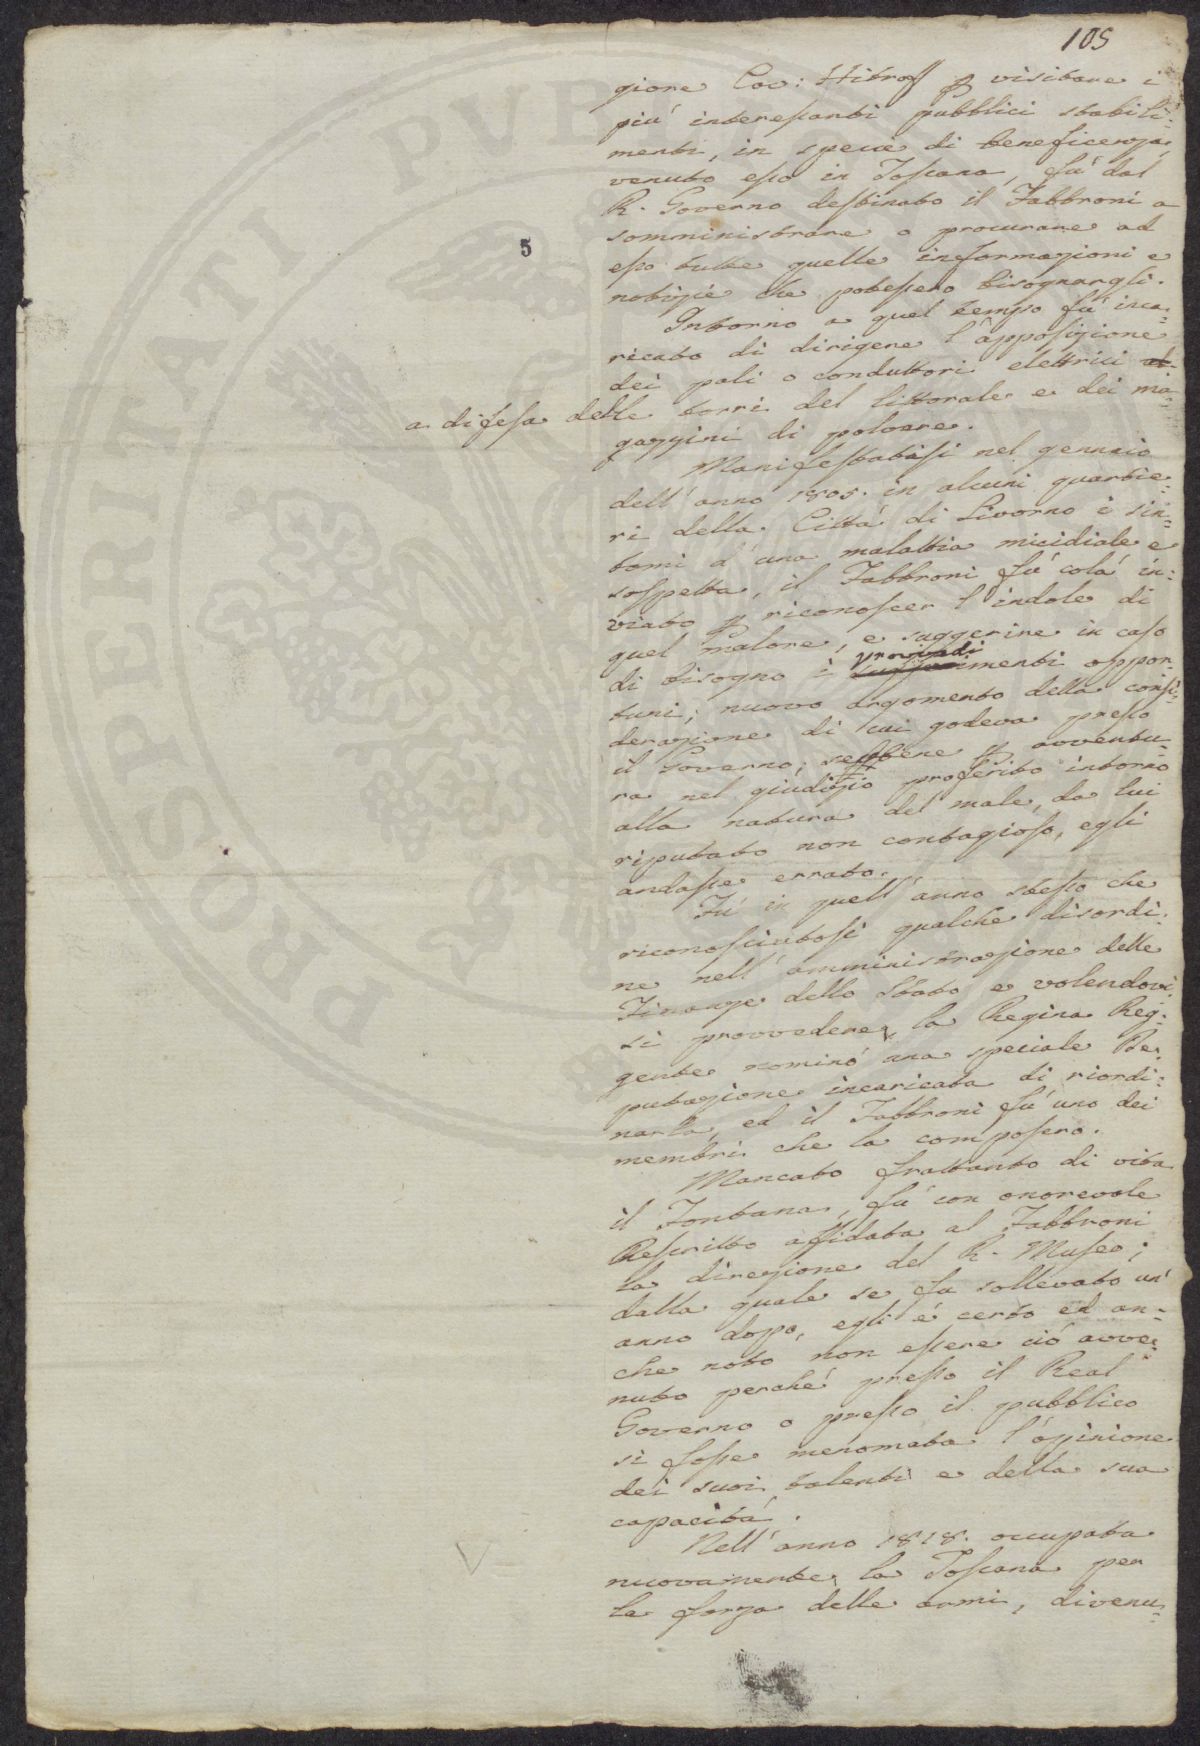 105
gione Cav: Hitrof p visitare i
più interessanti pubblici stabili-
menti, in specie di beneficenza,
venuto esso in Toscana, fù dal
R. Governo destinato il Fabbroni a
somministrare o procurare ad
5
esso tutte quelle informazioni e
notizie che potessero bisognargli.
Intorno a quel tempo fù inca-
ricato di dirigere l'apposizione
dei pali o conduttori elettrici
a difesa delle torri del littorale e dei ma-
gazzini di polvere.
Manifestatisi nel gennaio
dell'anno 1805. in alcuni quartie-
ri della Città di Livorno i sin-
tomi d'una malattia micidiale e
sospetta, il Fabbroni fù colà in-
viato p riconoscer l'indole di
quel malore, e suggerire in caso
di bisogno i provvedimenti oppor-
tuni; nuovo argomento della consi-
derazione di cui godeva presso
il Governo; sebbene p avventu-
ra nel giudizio proferito intorno
alla natura del male, da lui
riputato non contagioso, egli
andasse errato.
Fù in quell'anno stesso che
riconosciutosi qualche disordi-
ne nell'amministrazione delle
Finanze dello Stato e volendovi-
si provvedere, la Regina Reg-
gente nominò una speciale De-
putazione incaricata di riordi-
narla, ed il Fabbroni fù uno dei
membri che la composero.
Mancato frattanto di vita
il Fontana, fù con onorevole
Rescritto affidata al Fabbroni
la direzione del R. Museo;
dalla quale se fu sollevato un'
anno dopo, egli è certo ed an-
che noto non essere ciò avve-
nuto perchè presso il Real
Governo o presso il pubblico
si fosse menomata l'opinione
dei suoi talenti e della sua
capacità.
Nell'anno 1818. occupata
nuovamente la Toscana per
la forza delle armi, divenu-
PROSPERITATI